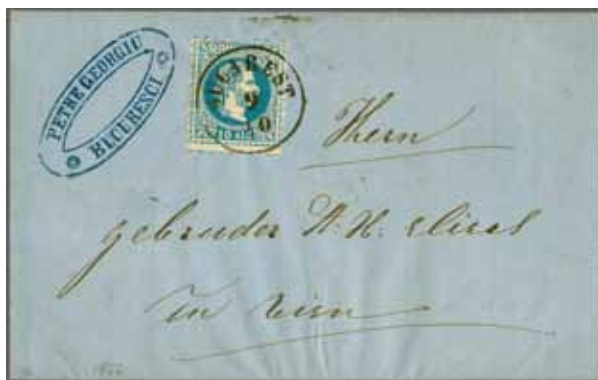 PETRE GEORGIU
BUCURESCI
BUCAREST
9
10
10 SLD
Herrn
gebruder A. H. elias
in Wien